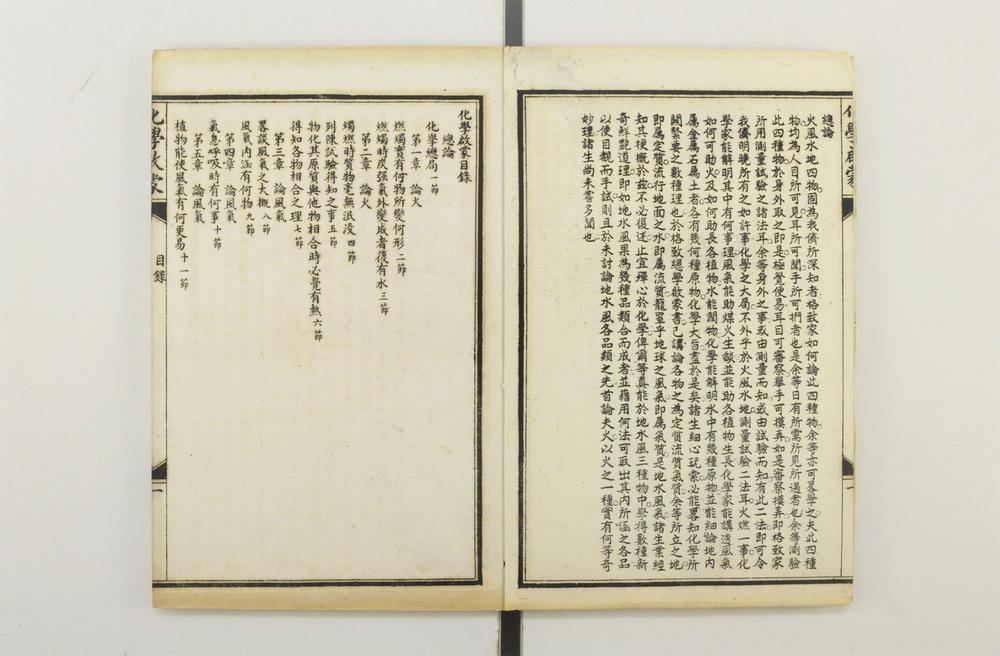 總論
火風水地四物固為我儕所深知者格致家如何論此四種物余等亦可畧學之夫此四種
物均為人目所可見耳所可聞手所可捫者也是余等日有所需所見所遇者也余等測驗
此四種物於身外取之即是極覺便易耳目可審察舉手可摸弄如是審察摸弄即格致家
所用測量試驗之諸法耳余等身外之事或由測量而知或由試驗而知有此二法即可令
我儕明曉所有之如許事化學之大局不外乎於火風水地測量試驗二法耳火燃一事化
學家能解明其中有何事理風氣能助煤火生燄並能助各植物生長化學家能講透風氣
如何可助火及如何助長各植物水能潤物化學能解明水中有幾種原物並能細論地內
屬金屬石屬土者各有幾何種原物化學大旨盡於是矣諸生細心玩索必能畧知化學所
關緊要之數種理也於格致總學啟蒙書已講論各物之為定質流質氣質余等所立之地
即屬定質流行地面之水即屬流質籠罩乎地球之風氣即屬氣質是地水風氣諸生業經
知其梗概於茲不必復述止宜殫心於化學俾爾等真能於地水風三種物中學得數種新
奇鮮艷道理即如地水風果為幾種品類合而成者並藉用何法可取出其內所涵之各品
以便目覩而手試則且於未討論地水風各品類之先首論夫火以火之一種實有何等奇
妙理諸生尚未嘗多聞也
化學啟蒙
一
化學啟蒙目錄
總論
化學總局一節
第一章 論火
燃燭實有何物所變何形二節
燃燭時炭强氣外變成者復有水三節
第二章 論火
燭燃時質物毫無泯沒四節
列陳試驗得知之事五節
物化其原質與他物相合時必覺有熱六節
得知各物相合之理七節
第三章 論風氣
畧談風氣之大概八節
風氣內涵有何物九節
第四章 論風氣
氣息呼吸時有何事十節
第五章 論風氣
植物能使風氣有何更易十一節
化學啟蒙
目錄
一